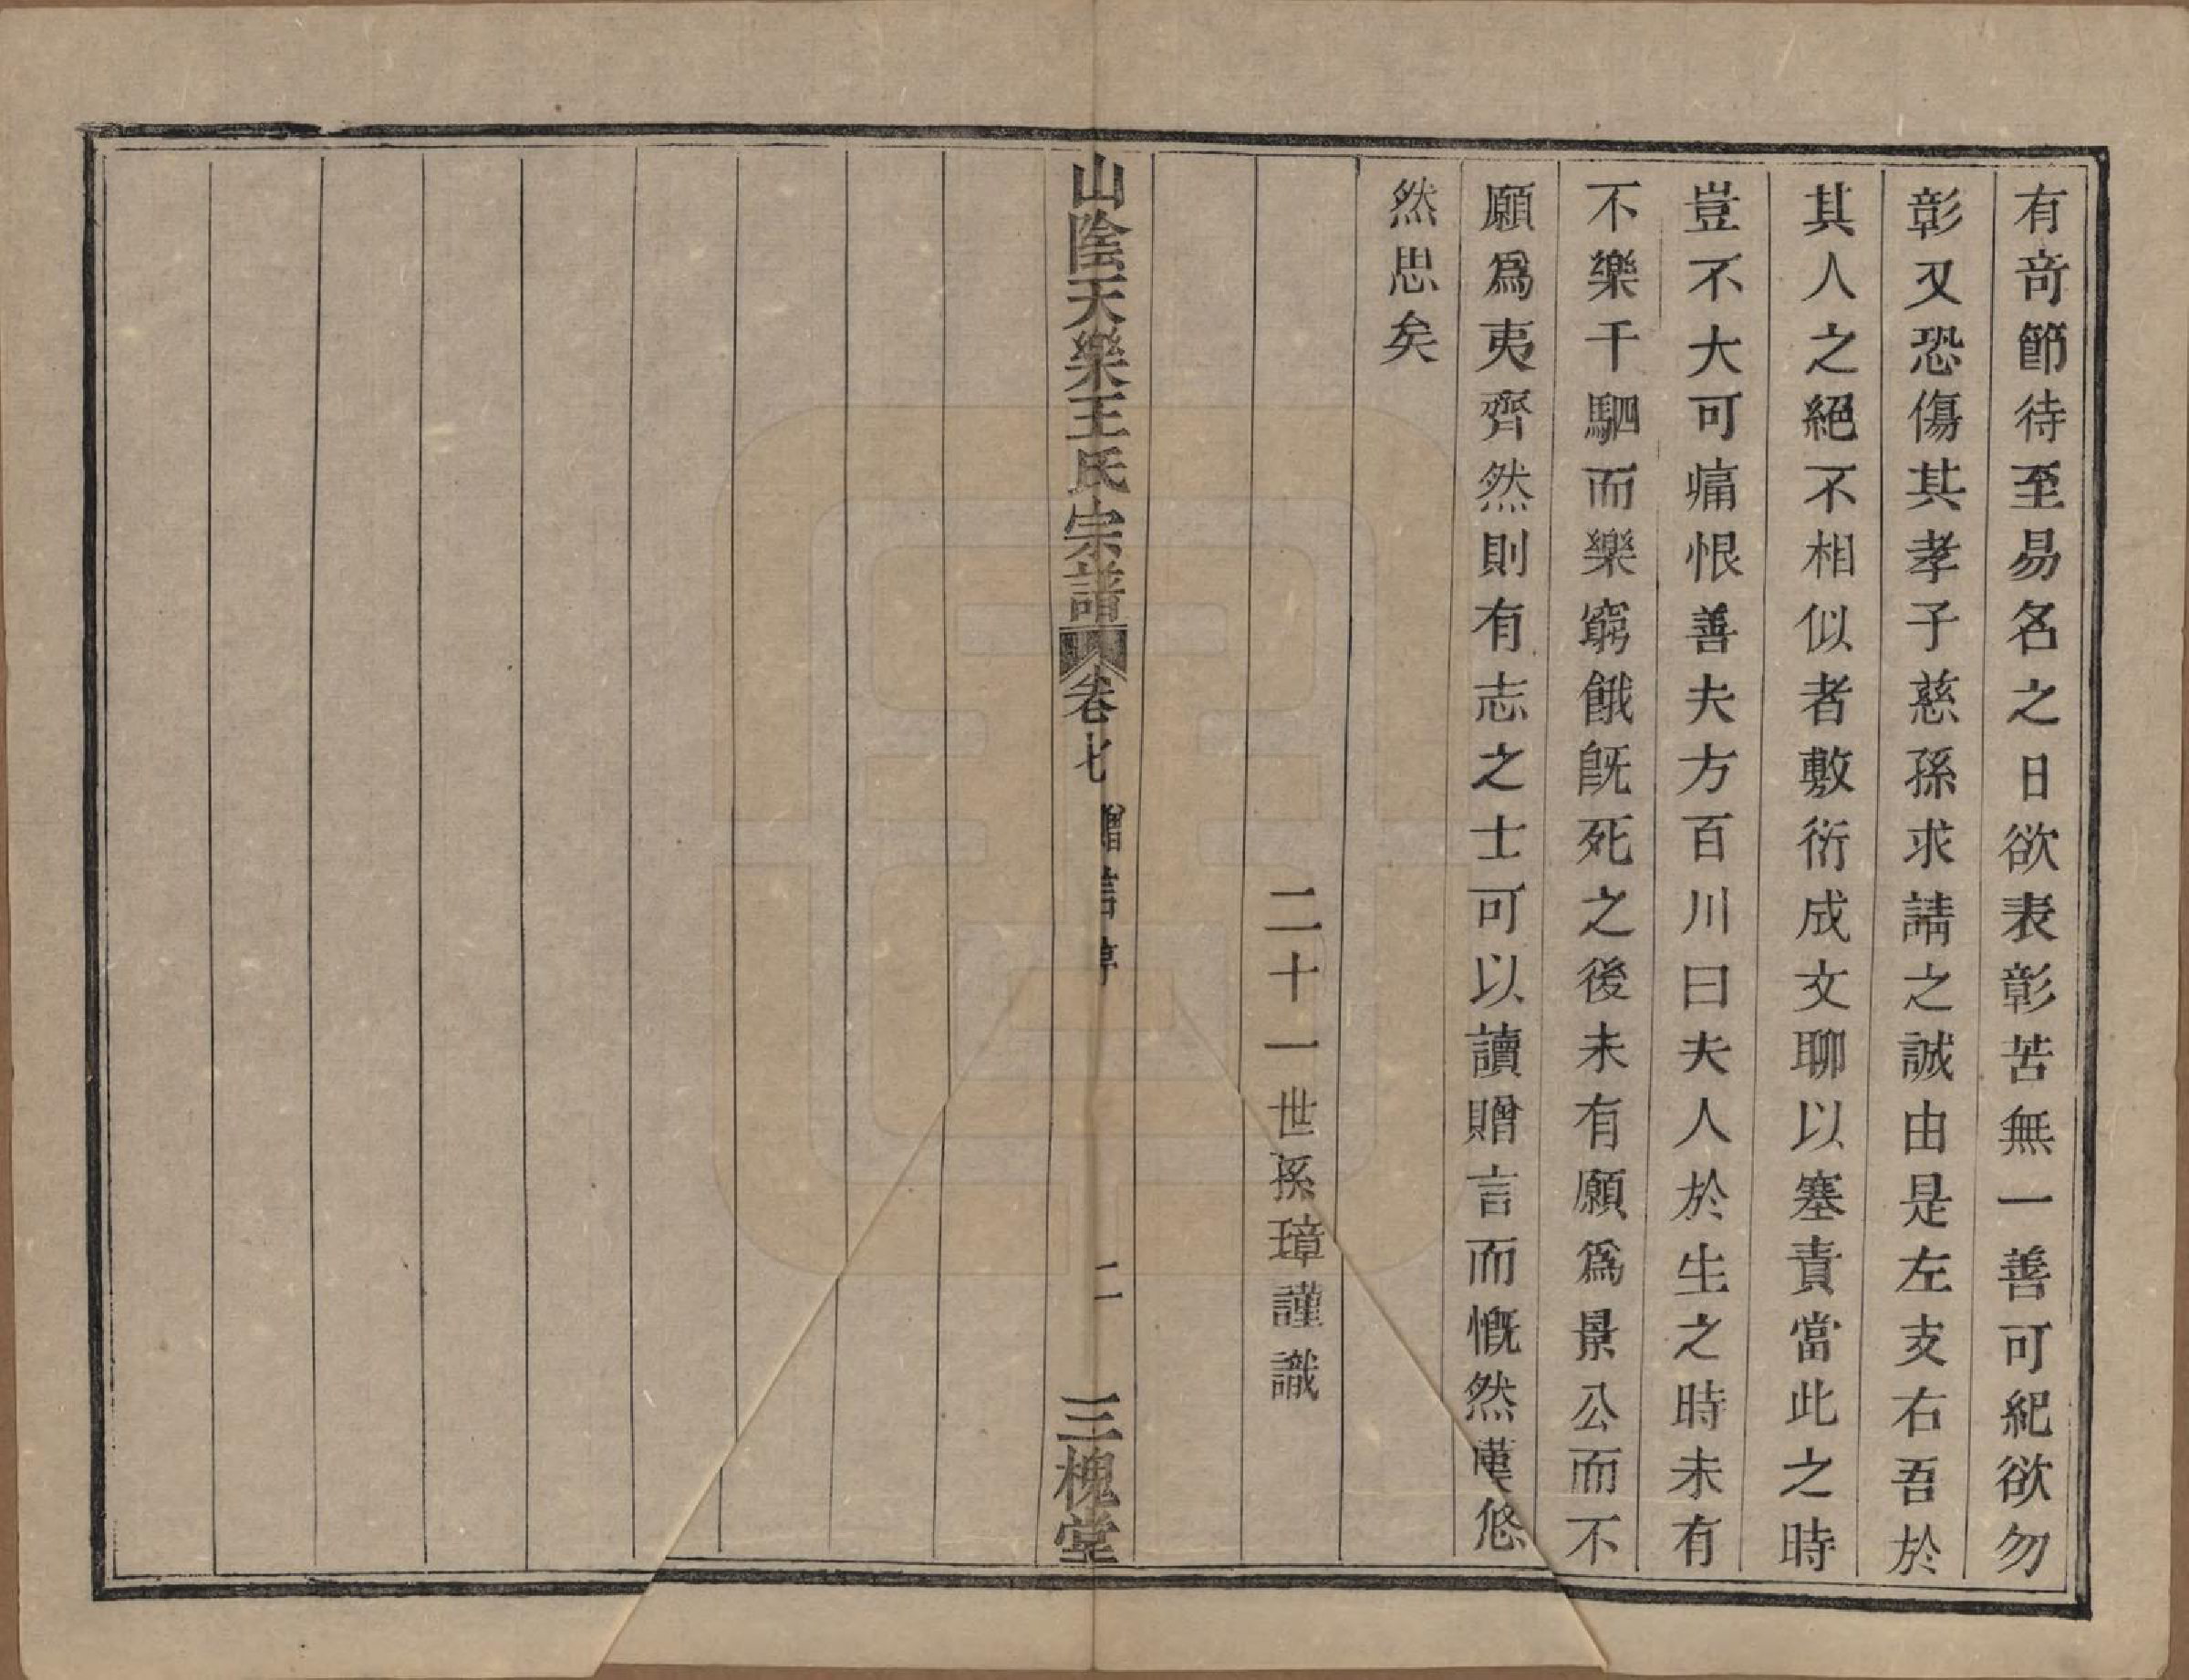 有奇節待至易名之日欲表彰苦無一善可紀欲勿
彰又恐傷其孝子慈孫求請之誠由是左支右吾於
其人之絕不相似者敷衍成文聊以塞責當此之時
豈不大可痛恨善夫方百川曰夫人於生之時未有
不樂千駟而樂窮餓既死之後未有願爲景公而不
願爲夷齊然則有志之士可以讀贈言而慨然嘆悠
然思矣
二十一世孫璋謹識
山陰天樂王氏宗譜 卷七 贈言 二 三槐堂